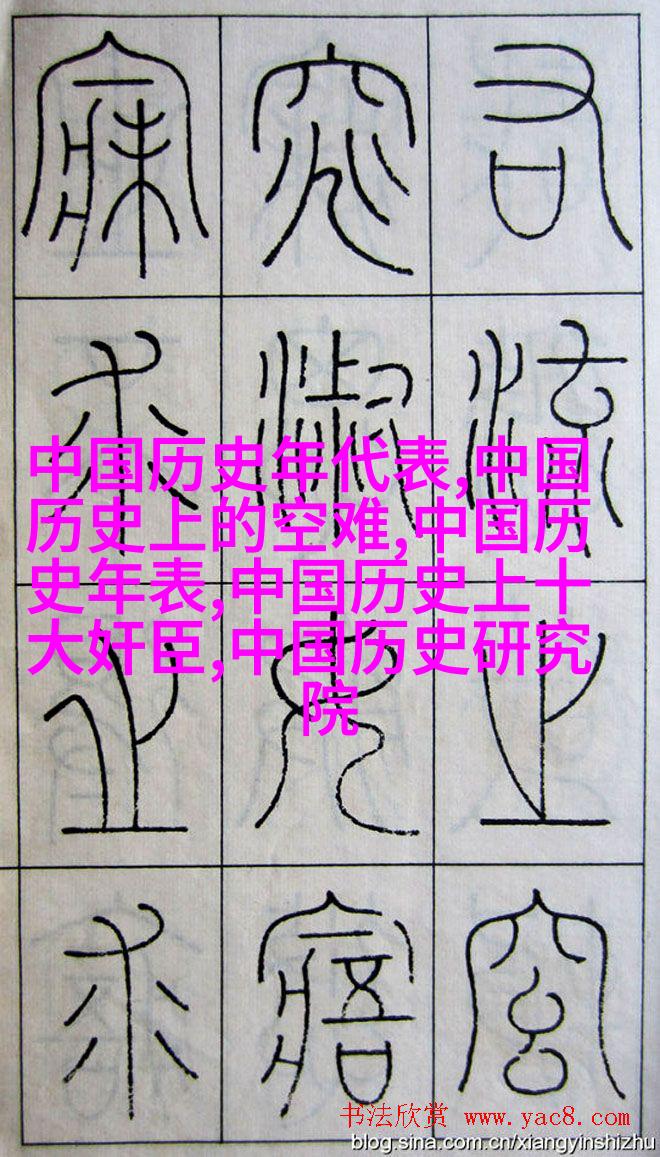 右流之窈
窕淑女寤
寐求之求
中国历史年代表,中国
历史上的空难,中国历
史年表,中国历史上十
大奸臣,中国历史研究
院
书法欣赏 www.yac8.com
blog.sina.com.cn/xiangyinshizhu